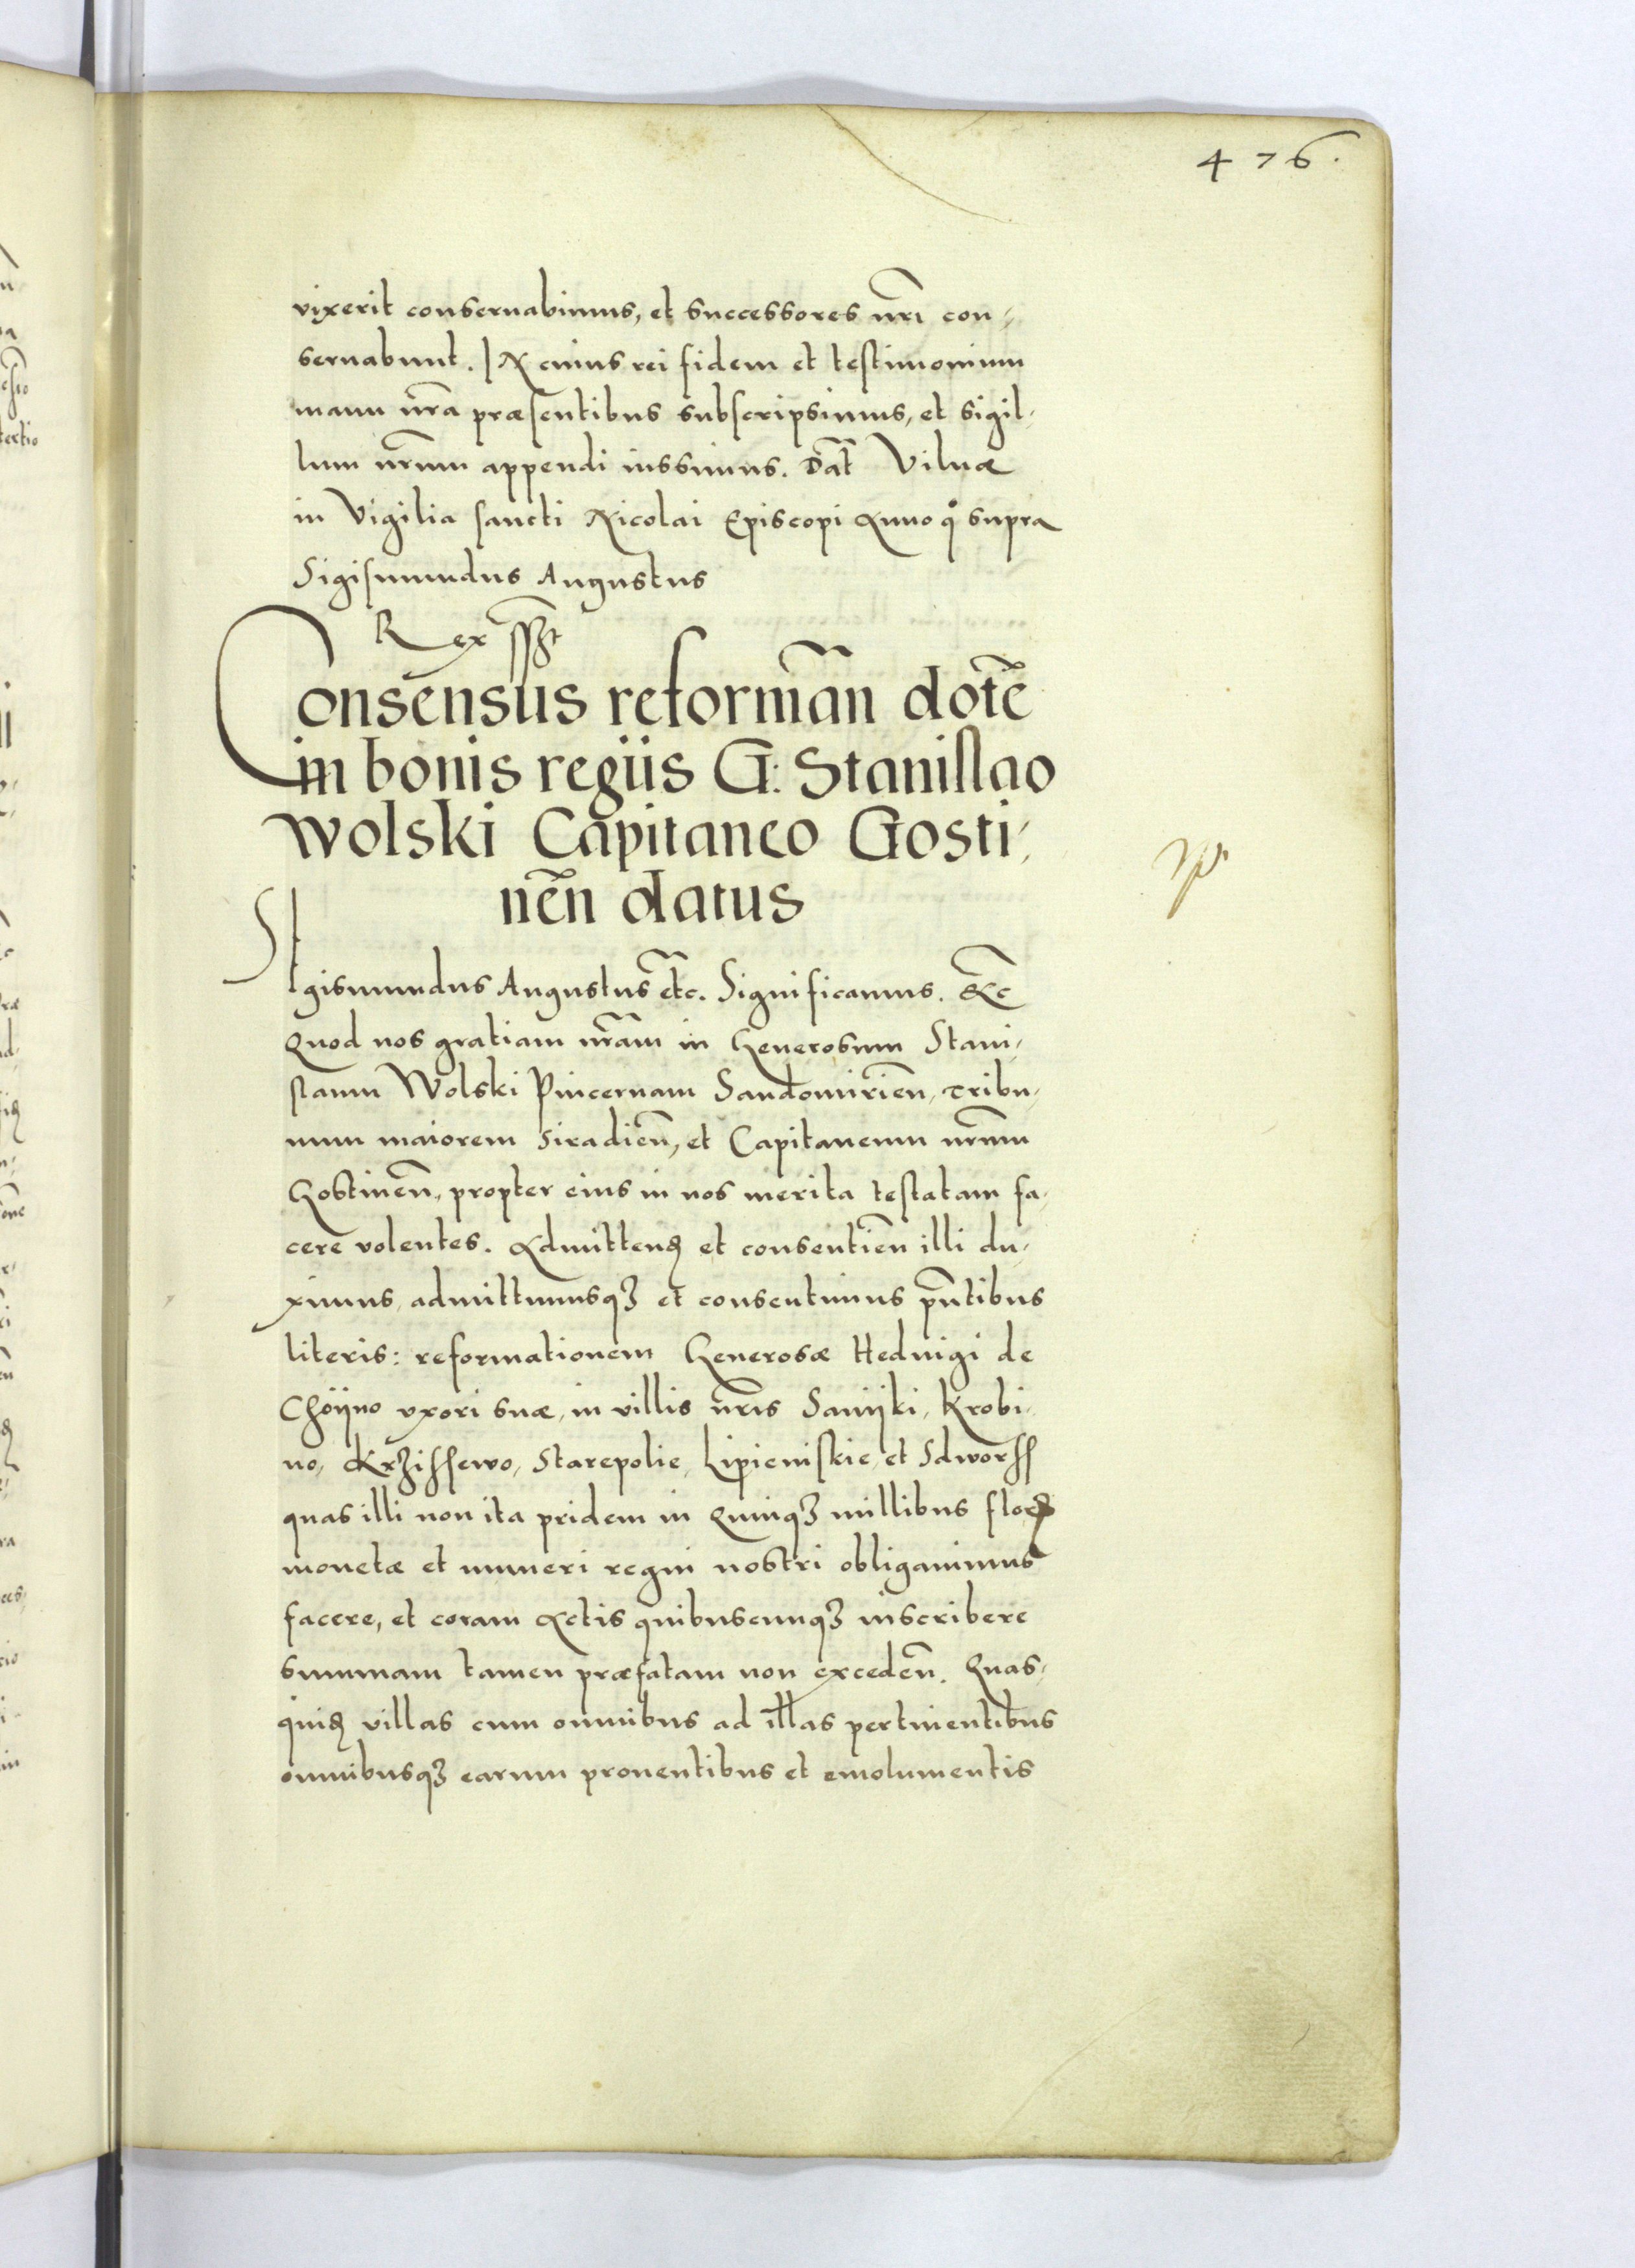 476.
vixerit conseruabimus, et successores nr̃i con-
seruabunt. IN cuius rei fidem et testimonium
manu nr̃a præsentibus subscripsimus, et sigil-
lum nr̃um appendi iussimus. Dat̃ Vilnæ
in Vigilia sancti Nicolai Episcopi Anno qͦ supra
Sigismundus Augustus
Rex sszt
Consensus reformañ dotẽ
in bonis regiis G: Stanislao
Wolski Capitaneo Gosti-
neñ datus
SIgismundus Augustus etc̃. Significamus. &c̃
Quod nos gratiam nr̃am in Generosum Stani-
slaum Wolski Pincernam Sandomirień, Tribu-
num maiorem Siradień, et Capitaneum nr̃um
Gostineñ, propter eius in nos merita testatam fa-
cere volentes. Admittenḍ et consentień illi du-
ximus, admittimusqꝫ et consentimus pñtibus
literis: reformationem Generosæ Heduigi de
Choÿno vxori suæ, in villis nr̃is Saniÿki, Krobi-
no, Krzissewo, Starepolie, Lipieniskie, et Sdworss
quas illi non ita pridem in Quinqꝫ millibus floꝝ
monetæ et numeri regni nostri obligauimus
facere, et coram Actis quibuscunqꝫ inscribere
summam tamen præfatam non excedeñ. Quas-
quiḍ villas cum omnibus ad illas pertinentibus
omnibusqꝫ earum prouentibus et emolumentis